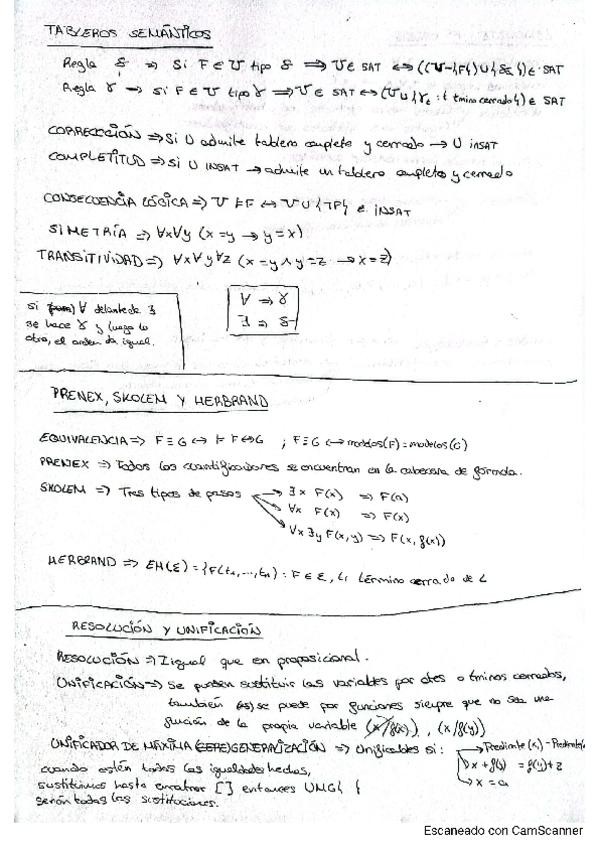 TABLEROS SEMÁNTICOS
Regla δ => Si F ∈ U tipo δ => U ∈ SAT <-> ((U-{F}) ∪ {δa}) ∈ SAT
Regla γ => si F ∈ U tipo γ => U ∈ SAT <-> (U ∪ {γt : t tmino cerrado}) ∈ SAT
CORRECCIÓN => Si U admite tablero completo y cerrado -> U insat
COMPLETITUD => si U INSAT -> admite un tablero completo y cerrado
CONSECUENCIA LÓGICA => U ⊨ F <-> U ∪ {¬F} ∈ INSAT
SIMETRÍA => ∀x∀y (x=y -> y=x)
TRANSITIVIDAD => ∀x∀y∀z (x=y ∧ y=z -> x=z)
si ∀ delante de ∃
se hace γ y luego lo
otro, el orden da igual.
∀ => γ
∃ => δ
PRENEX, SKOLEM Y HERBRAND
EQUIVALENCIA => F≡G <-> ⊨ F<->G ; F≡G <-> modelos(F) = modelos(G)
PRENEX => Todos los cuantificadores se encuentran en la cabecera de fórmula.
SKOLEM => Tres tipos de pasos
∃x F(x) => F(a)
∀x F(x) => F(x)
∀x∃y F(x,y) => F(x,f(x))
HERBRAND => EH(Σ) = {F(t1,...,tn) : F ∈ Σ, ti término cerrado de L
RESOLUCIÓN Y UNIFICACIÓN
RESOLUCIÓN => Igual que en proposicional.
UNIFICACIÓN => Se pueden sustituir las variables por ctes o tminos cerrados,
también se puede por funciones siempre que no sea una
función de la propia variable (x/f(x)), (x/f(y))
UNIFICADOR DE MÁXIMA GENERALIZACIÓN => Unificables si:
x + f(y) = f(y) + z
x = a
cuando estén todas las igualdades hechas,
sustituimos hasta encontrar [] entonces UMG{ }
serán todas las sustituciones.
Escaneado con CamScanner